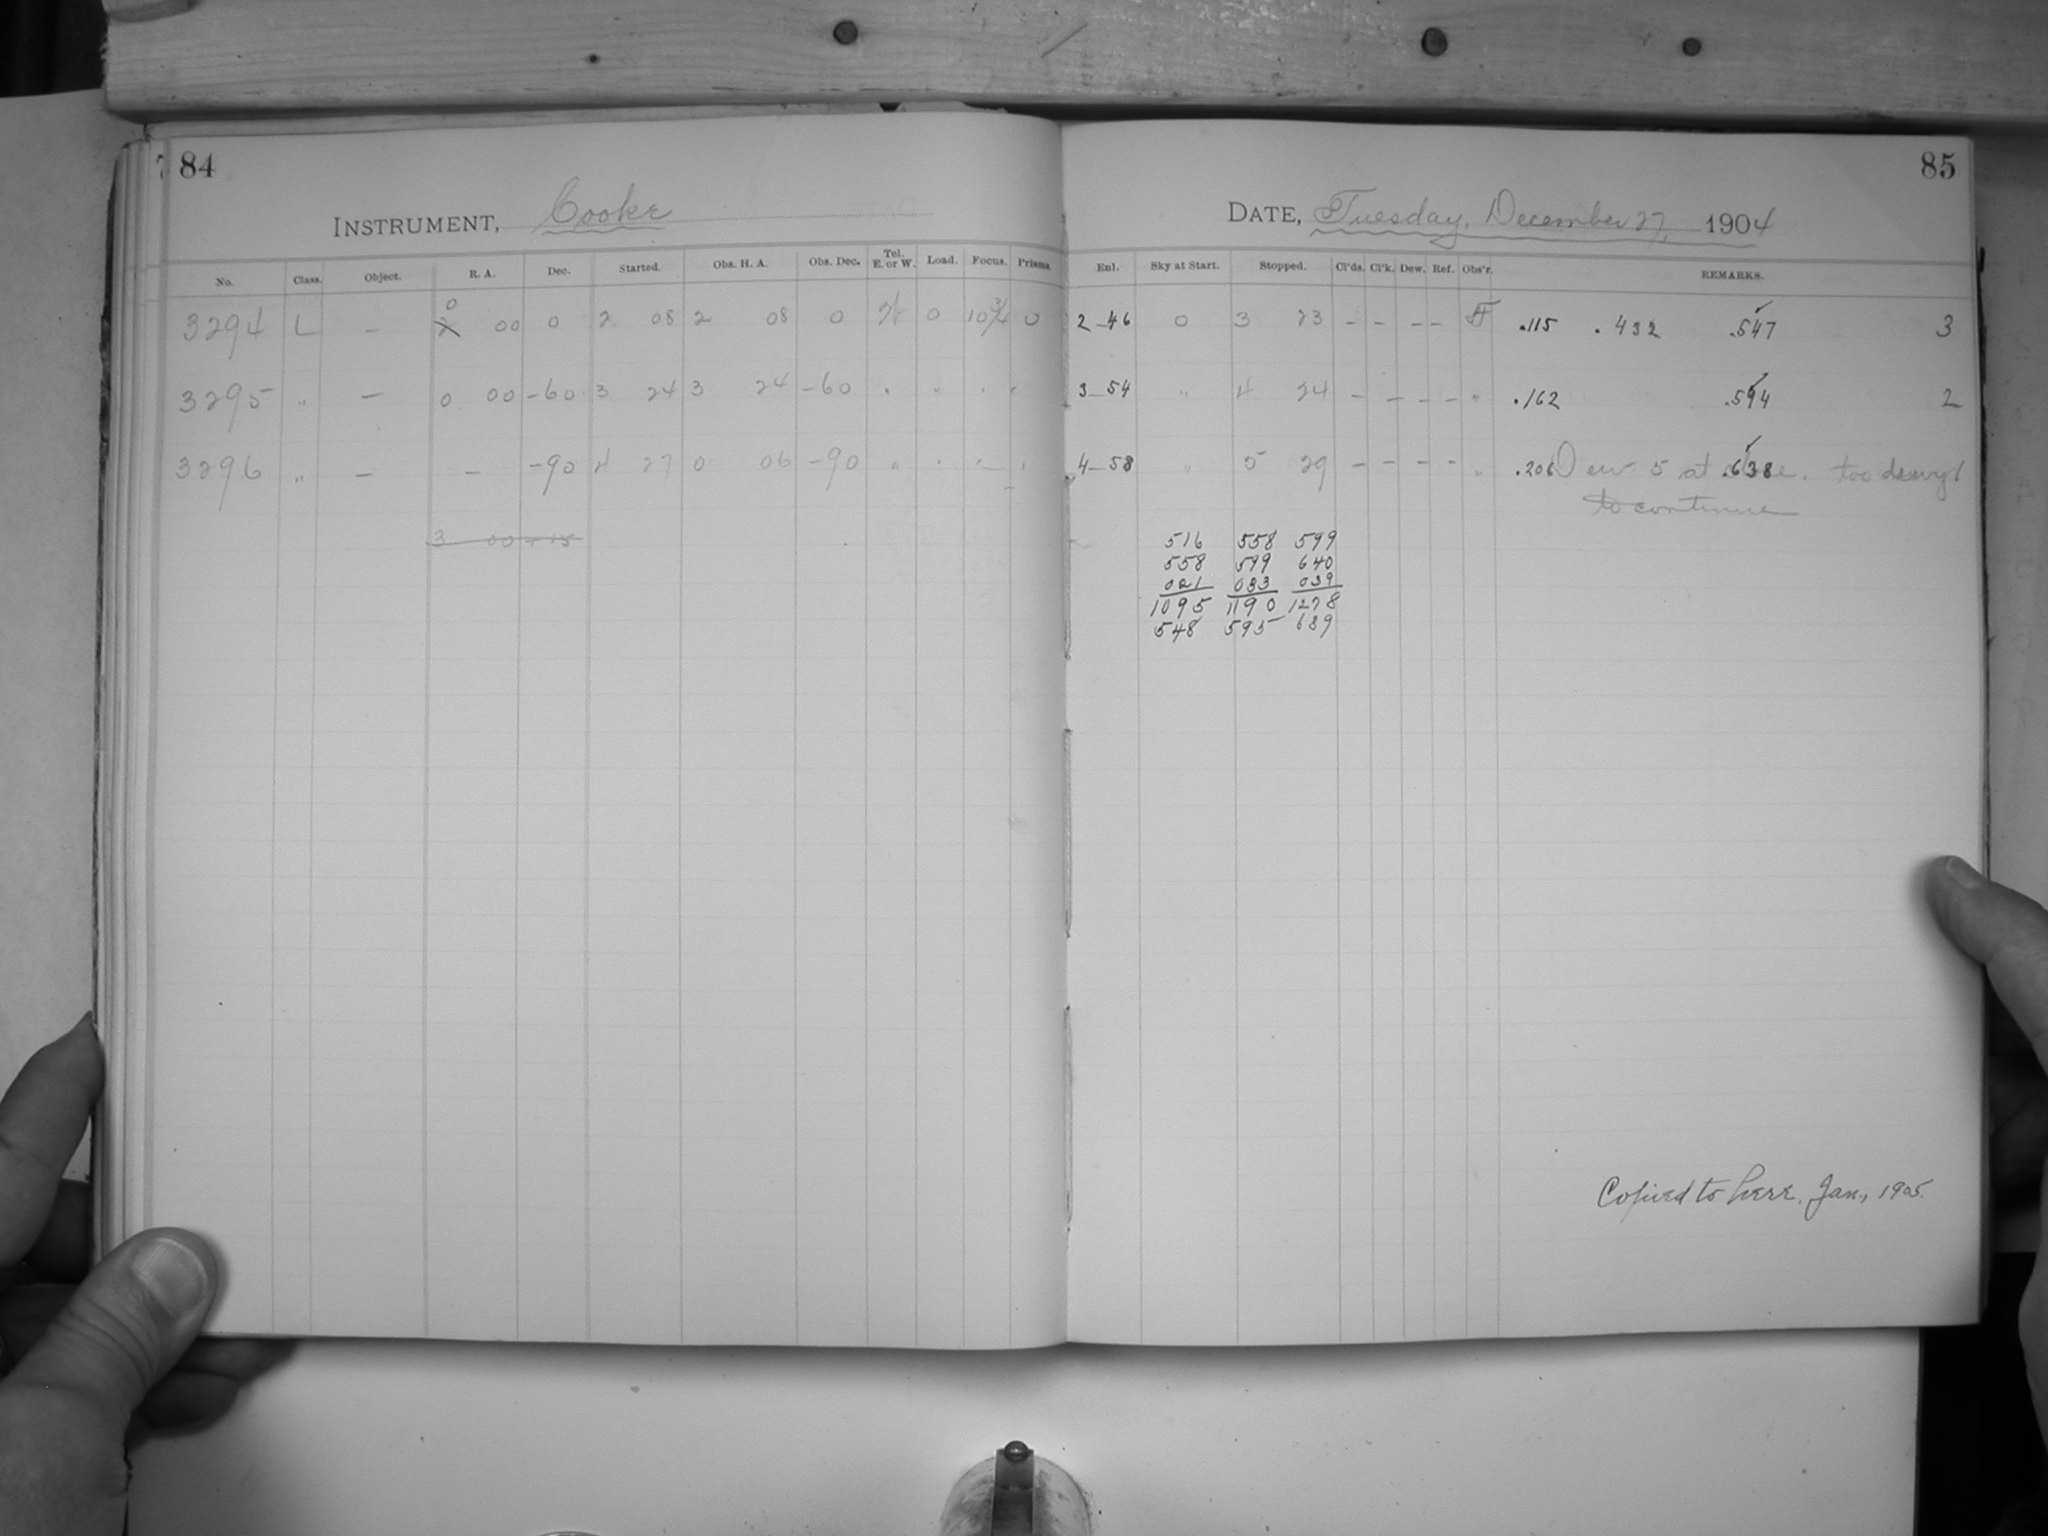 84
INSTRUMENT, Cooke
No. Class. Object. R. A. Dec. Started. Obs. H. A. Obs. Dec. Tel. E. or W. Load. Focus. Prisms.
0
3294 L — 2 00 0 2 08 2 08 0 W 0 10 3/4 0
3295 " — 0 00 -60 3 24 3 24 -60 " " " "
3296 " — — -90 4 27 0 06 -90 " " " "
3 00 +15
85
DATE, Tuesday, December 27, 1904
Enl. Sky at Start. Stopped. Cl'ds. Cl'k. Dew. Ref. Obs'r. REMARKS.
2-46 0 3 23 - - - - .115 .432 .547 3
3-54 " 4 24 - - - - " .162 .594 2
4-58 " 5 29 - - - - " .206 Dew 5 at .638 too dewy 1
to continue
516 558 599
558 599 640
021 033 039
1095 1190 1278
548 595 639
Copied to here. Jan., 1905.